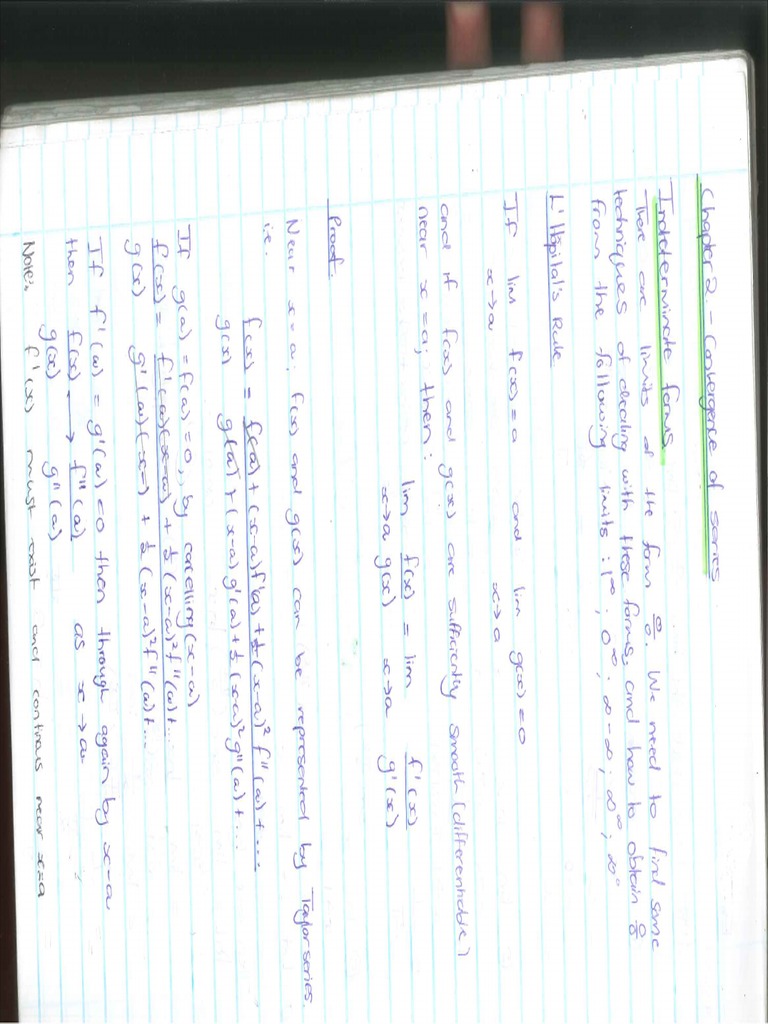 Chapter 2. - Convergence of series
Indeterminate forms
- There are limits of the form 0/0. We need to find some
techniques of dealing with these forms, and how to obtain 0/0
from the following limits : 1^∞ ; 0^∞ ; ∞ - ∞ ; ∞^∞ ; ∞^0
L'Hôpital's Rule
If lim f(x) = 0 and lim g(x) = 0
x→a x→a
and if f(x) and g(x) are sufficiently smooth (differentiable)
near x = a; then :
lim f(x)/g(x) = lim f'(x)/g'(x)
x→a x→a
Proof:
Near x = a; f(x) and g(x) can be represented by Taylor series.
i.e.
f(x)/g(x) = f(a) + (x-a)f'(a) + ½(x-a)² f''(a) + .../g(a) + (x-a) g'(a) + ½(x-a)² g''(a) + ...
If g(a) = f(a) = 0, by cancelling (x-a)
f(x)/g(x) = f'(a)(x-a) + ½(x-a)² f''(a) + .../g'(a)(x-) + ½(x-a)² f''(a) + ...
If f'(a) = g'(a) = 0 then through again by x-a
then f(x)/g(x) → f''(a)/g''(a) as x → a.
Note: f'(x) must exist and continous near x=a